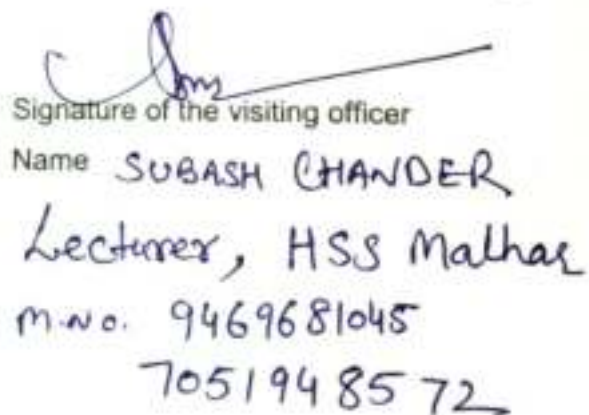 Signature of the visiting officer
Name SUBASH CHANDER
Lecturer, HSS Malhar
M.No. 9469681045
7051948572